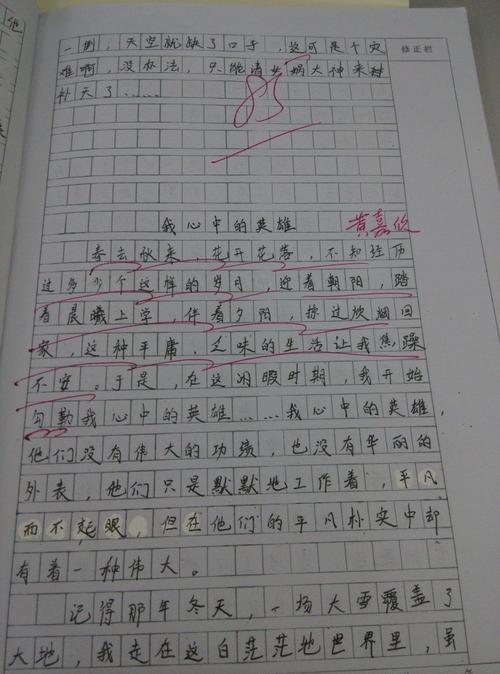 一倒，天空就缺了口子，这可是个灾
修正栏
难啊，没办法，只能请女娲大神来补
补天了……
85
我心中的英雄
黄嘉欣
春去秋来，花开花落，不知经历
过多少个这样的岁月，迎着朝阳，踏
着晨曦上学，伴着夕阳，掠过炊烟回
家，这种平庸，乏味的生活让我焦躁
不安。于是，在这闲暇时期，我开始
勾勒我心中的英雄……我心中的英雄，
他们没有伟大的功绩，也没有华丽的
外表，他们只是默默地工作着，平凡
而不起眼，但在他们的平凡朴实中却
有着一种伟大。
记得那年冬天，一场大雪覆盖了
大地，我走在这白茫茫地世界里，虽